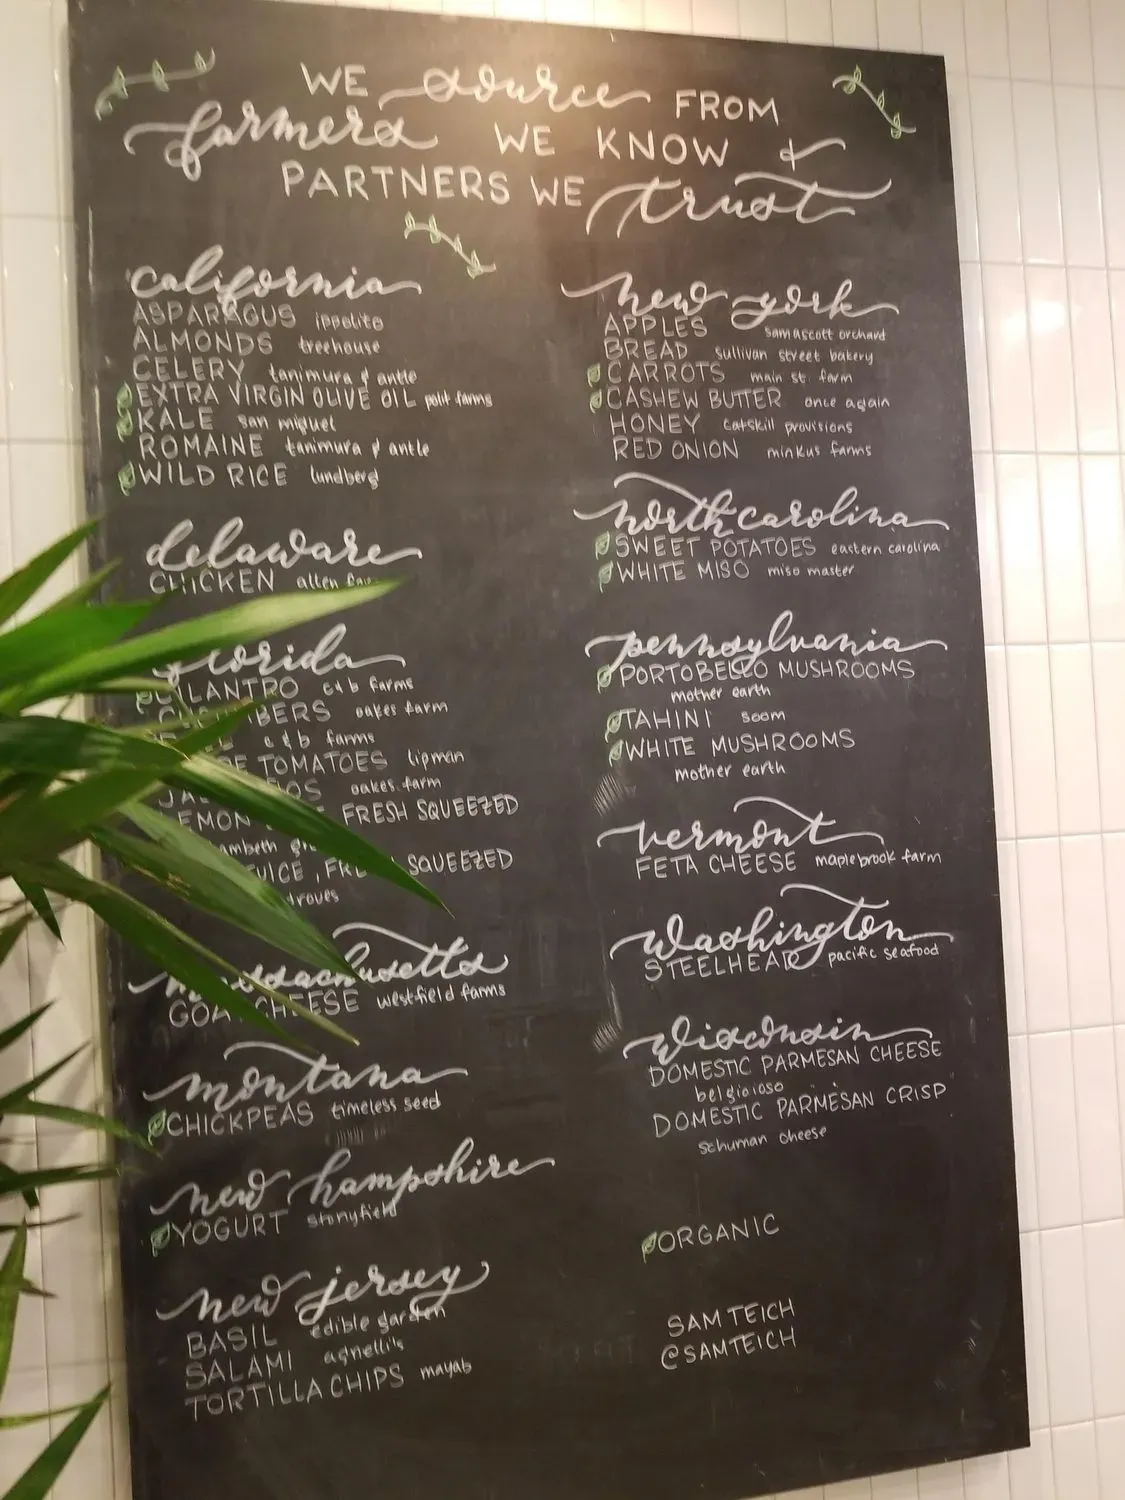 WE source FROM
farmers WE KNOW &
PARTNERS WE trust
california
ASPARAGUS ippolito
ALMONDS treehouse
CELERY tanimura & antle
EXTRA VIRGIN OLIVE OIL polit farms
KALE san miguel
ROMAINE tanimura & antle
WILD RICE lundberg
delaware
CHICKEN allen
florida
CILANTRO c&b farms
oakes farm
c&b farms
TOMATOES lipman
oakes farm
FRESH SQUEEZED
SQUEEZED
massachusetts
GOAT CHEESE westfield farms
montana
CHICKPEAS timeless seed
new hampshire
YOGURT stonyfield
new jersey
BASIL edible garden
SALAMI agnelli's
TORTILLA CHIPS mayab
new york
APPLES samascott orchard
BREAD sullivan street bakery
CARROTS main st. farm
CASHEW BUTTER once again
HONEY catskill provisions
RED ONION minkus farms
north carolina
SWEET POTATOES eastern carolina
WHITE MISO miso master
pennsylvania
PORTOBELLO MUSHROOMS
mother earth
TAHINI soom
WHITE MUSHROOMS
mother earth
vermont
FETA CHEESE maplebrook farm
washington
STEELHEAD pacific seafood
wisconsin
DOMESTIC PARMESAN CHEESE
belgioioso
DOMESTIC PARMESAN CRISP
schuman cheese
ORGANIC
SAM TEICH
@SAMTEICH